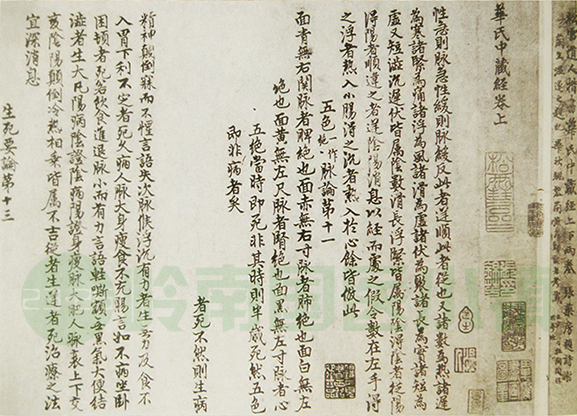 華氏中藏經卷上
性急則脉急性緩則脉緩反此者逆順此者從也又諸數為熱諸遲
為寒諸緊為痛諸浮為風諸滑為虛諸伏為聚諸長為實諸短為
虛又短澁沉遲伏皆屬陰數滑長浮緊皆屬陽陰得陰者從陽
得陽者順違之者逆陰陽消息以經而處之假令數在左手得
之浮者熱入小腸得之沉者熱入於心餘皆倣此
五色一作絕脉論第十一
面青無右關脉者脾絕也面赤無右寸脉者肺絕也面白無左
絕也面黃無左尺脉者腎絕也面黑無左寸脉者心
五絕當時即死非其時則半歲死然五色
即非病者矣
者死不然則生病
精神顛倒寐而不惺言語失次脉候浮沉有力者生無力及食不
入胃下利不定者死久病人脉大身瘦食不充腸言如不病坐卧
困頓者死若飲食進退脉小而有力言語輕嘶額無黑氣大便結
澁者生大凡陽病陰證陰病陽證身瘦脉大肥人脉衰上下交
變陰陽顛倒冷熱相乘皆屬不吉從者生逆者死治療之法
宜深消息
生死要論第十三